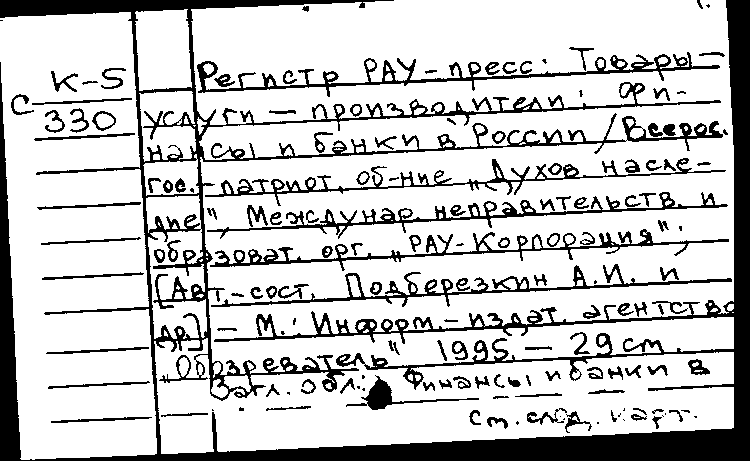 К-5
С 330
Регистр РАУ-пресс: Товары —
услуги — производители: Фи-
нансы и банки в России / Всерос.
гос.-патриот. об-ние „Духов. насле-
дие", Междунар. неправительств. и
образоват. орг. „РАУ-Корпорация";
[Авт.-сост. Подберезкин А.И. и
др.]. — М.: Информ.-издат. агентство
„Обозреватель" 1995. — 29 см.
Загл. обл.: Финансы и банки в
См. след. карт.